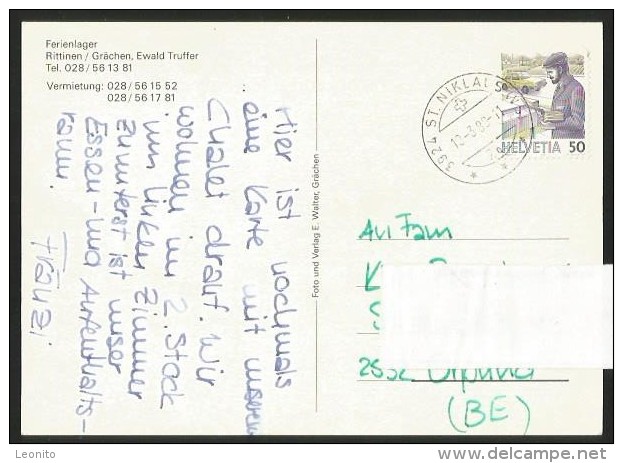 Ferienlager
Rittinen / Grächen, Ewald Truffer
Tel. 028 / 56 13 81
Vermietung: 028 / 56 15 52
028 / 56 17 81
Hier ist nochmals
eine Karte mit unserem
Chalet drauf. Wir
wohnen im 2. Stock
im linken Zimmer
Zunnterst ist unser
Essen- und Aufenthalts-
raum.
Fränzi
Foto und Verlag E. Walter, Grächen
3924 ST. NIKLAUS
HELVETIA 50
An Fam
(BE)
Leonito
www.delcampe.net